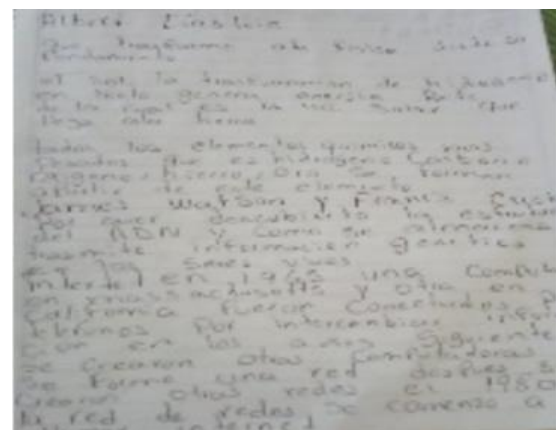 Albert Einstein
que transformo a la fisica desde su
fundamento
el sol la transformacion de hidrogeno
en helio genera energia Parte
de la cual es la luz solar que
llega a la tierra
todos los elementos quimicos mas
pesados que es hidrogeno Carbono
Oxigeno, hierro, Oro se forman
apartir de este elemento
James Watson y Francis
Por aver descubierto la
del ADN y como se
trasmite informacion genetica
En los seres vivos
Internet en 1965 una
en massachusetts y otra en
California fueron conectadas
Por intercambiar
cion en los años siguiente
se crearon otras computadoras
se formo una red despues
Crearon otras redes en 1980
la red de redes se comenzo a
internet